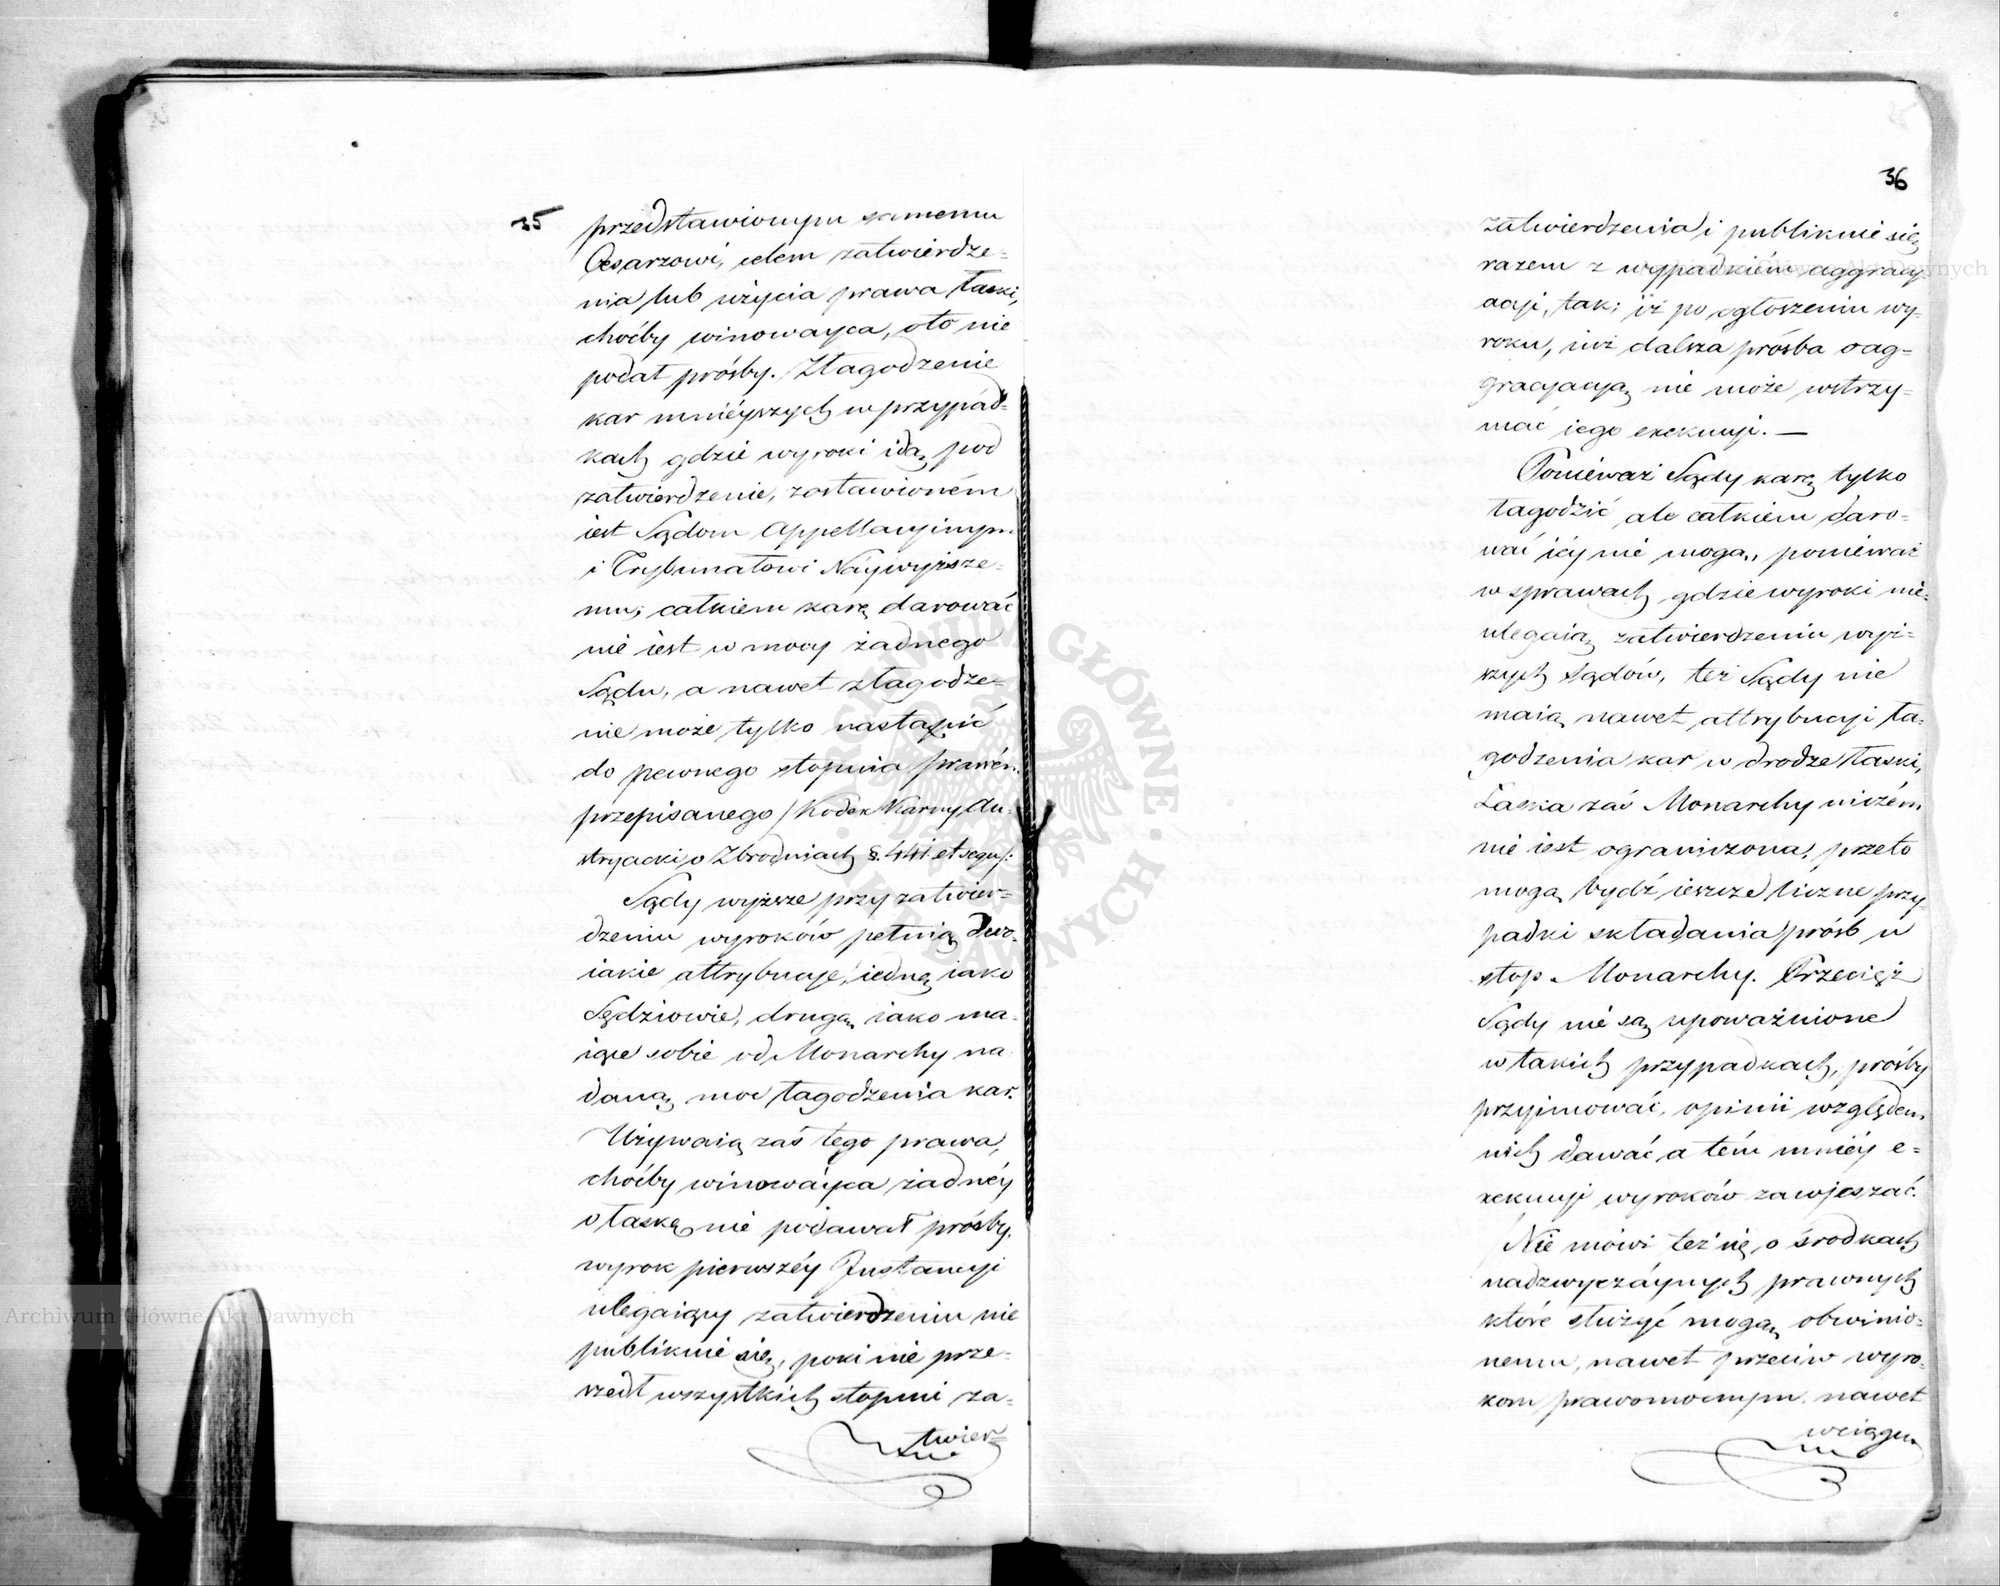 35
przedstawionym samemu
Cesarzowi, celem zatwierdze=
nia lub użycia prawa łaski,
choćby winowayca, oto nie
podał próśby. Złagodzenie
kar mnieyszych w przypad=
kach gdzie wyroki idą pod
zatwierdzenie, zostawioném
iest Sądom Appellacyinym
i Trybunałowi Naywyższe=
mu; całkiem karę darować
nie iest w mocy żadnego
Sądu, a nawet złagodze=
nie może tylko nastąpić
do pewnego stopnia prawém
przepisanego /Kodex Karny Au=
stryacki o Zbrodniach §. 441. et sequ/:
Sądy wyższe przy zatwier=
dzeniu wyroków pełnią dwo=
iakie attrybucye, iedną iako
Sędziowie, drugą iako ma=
iące sobie od Monarchy na=
daną moc łagodzenia kar.
Używaią zaś tego prawa,
choćby winowayca żadnéy
o łaskę nie podawał próśby.
wyrok pierwszéy Instancyi
ulegaiący zatwierdzeniu nie
publikuie się, poki nie prze=
szedł wszystkich stopni za=
twier=
36
zatwierdzenia i publikuie się
razem z wypadkiém aggracy
acyi, tak; iż po ogłoszeniu wy=
roku, iuż dalsza prośba o ag=
gracyacyą nie może wstrzy=
mać iego exekucyi. —
Ponieważ Sądy karę tylko
łagodzić ale całkiem daro=
wać iéy nie mogą, ponieważ
w sprawach gdzie wyroki nie=
ulegaią zatwierdzeniu wyż=
szych Sądów, też Sądy nie
maią nawet attrybucyi ła=
godzenia kar w drodze łaski,
Łaska zaś Monarchy niczém
nie iest ograniczona, przeto
mogą bydź ieszcze liczne przy=
padki składania próśb u
stop Monarchy. Przecięż
Sądy nie są upoważnione
w takich przypadkach, prośby
przyimować, opinii względem
nich dawać a tém mniéy e=
xekucyi wyroków zawieszać.
Nie mówi też się o środkach
nadzwyczaynych prawnych
które służyć mogą obwinio=
nemu, nawet przeciw wyro=
kom prawomocnym. nawet
wciągu
Archiwum Główne Akt Dawnych
Archiwum Główne Akt Dawnych
ARCHIWUM GŁÓWNE AKT DAWNYCH